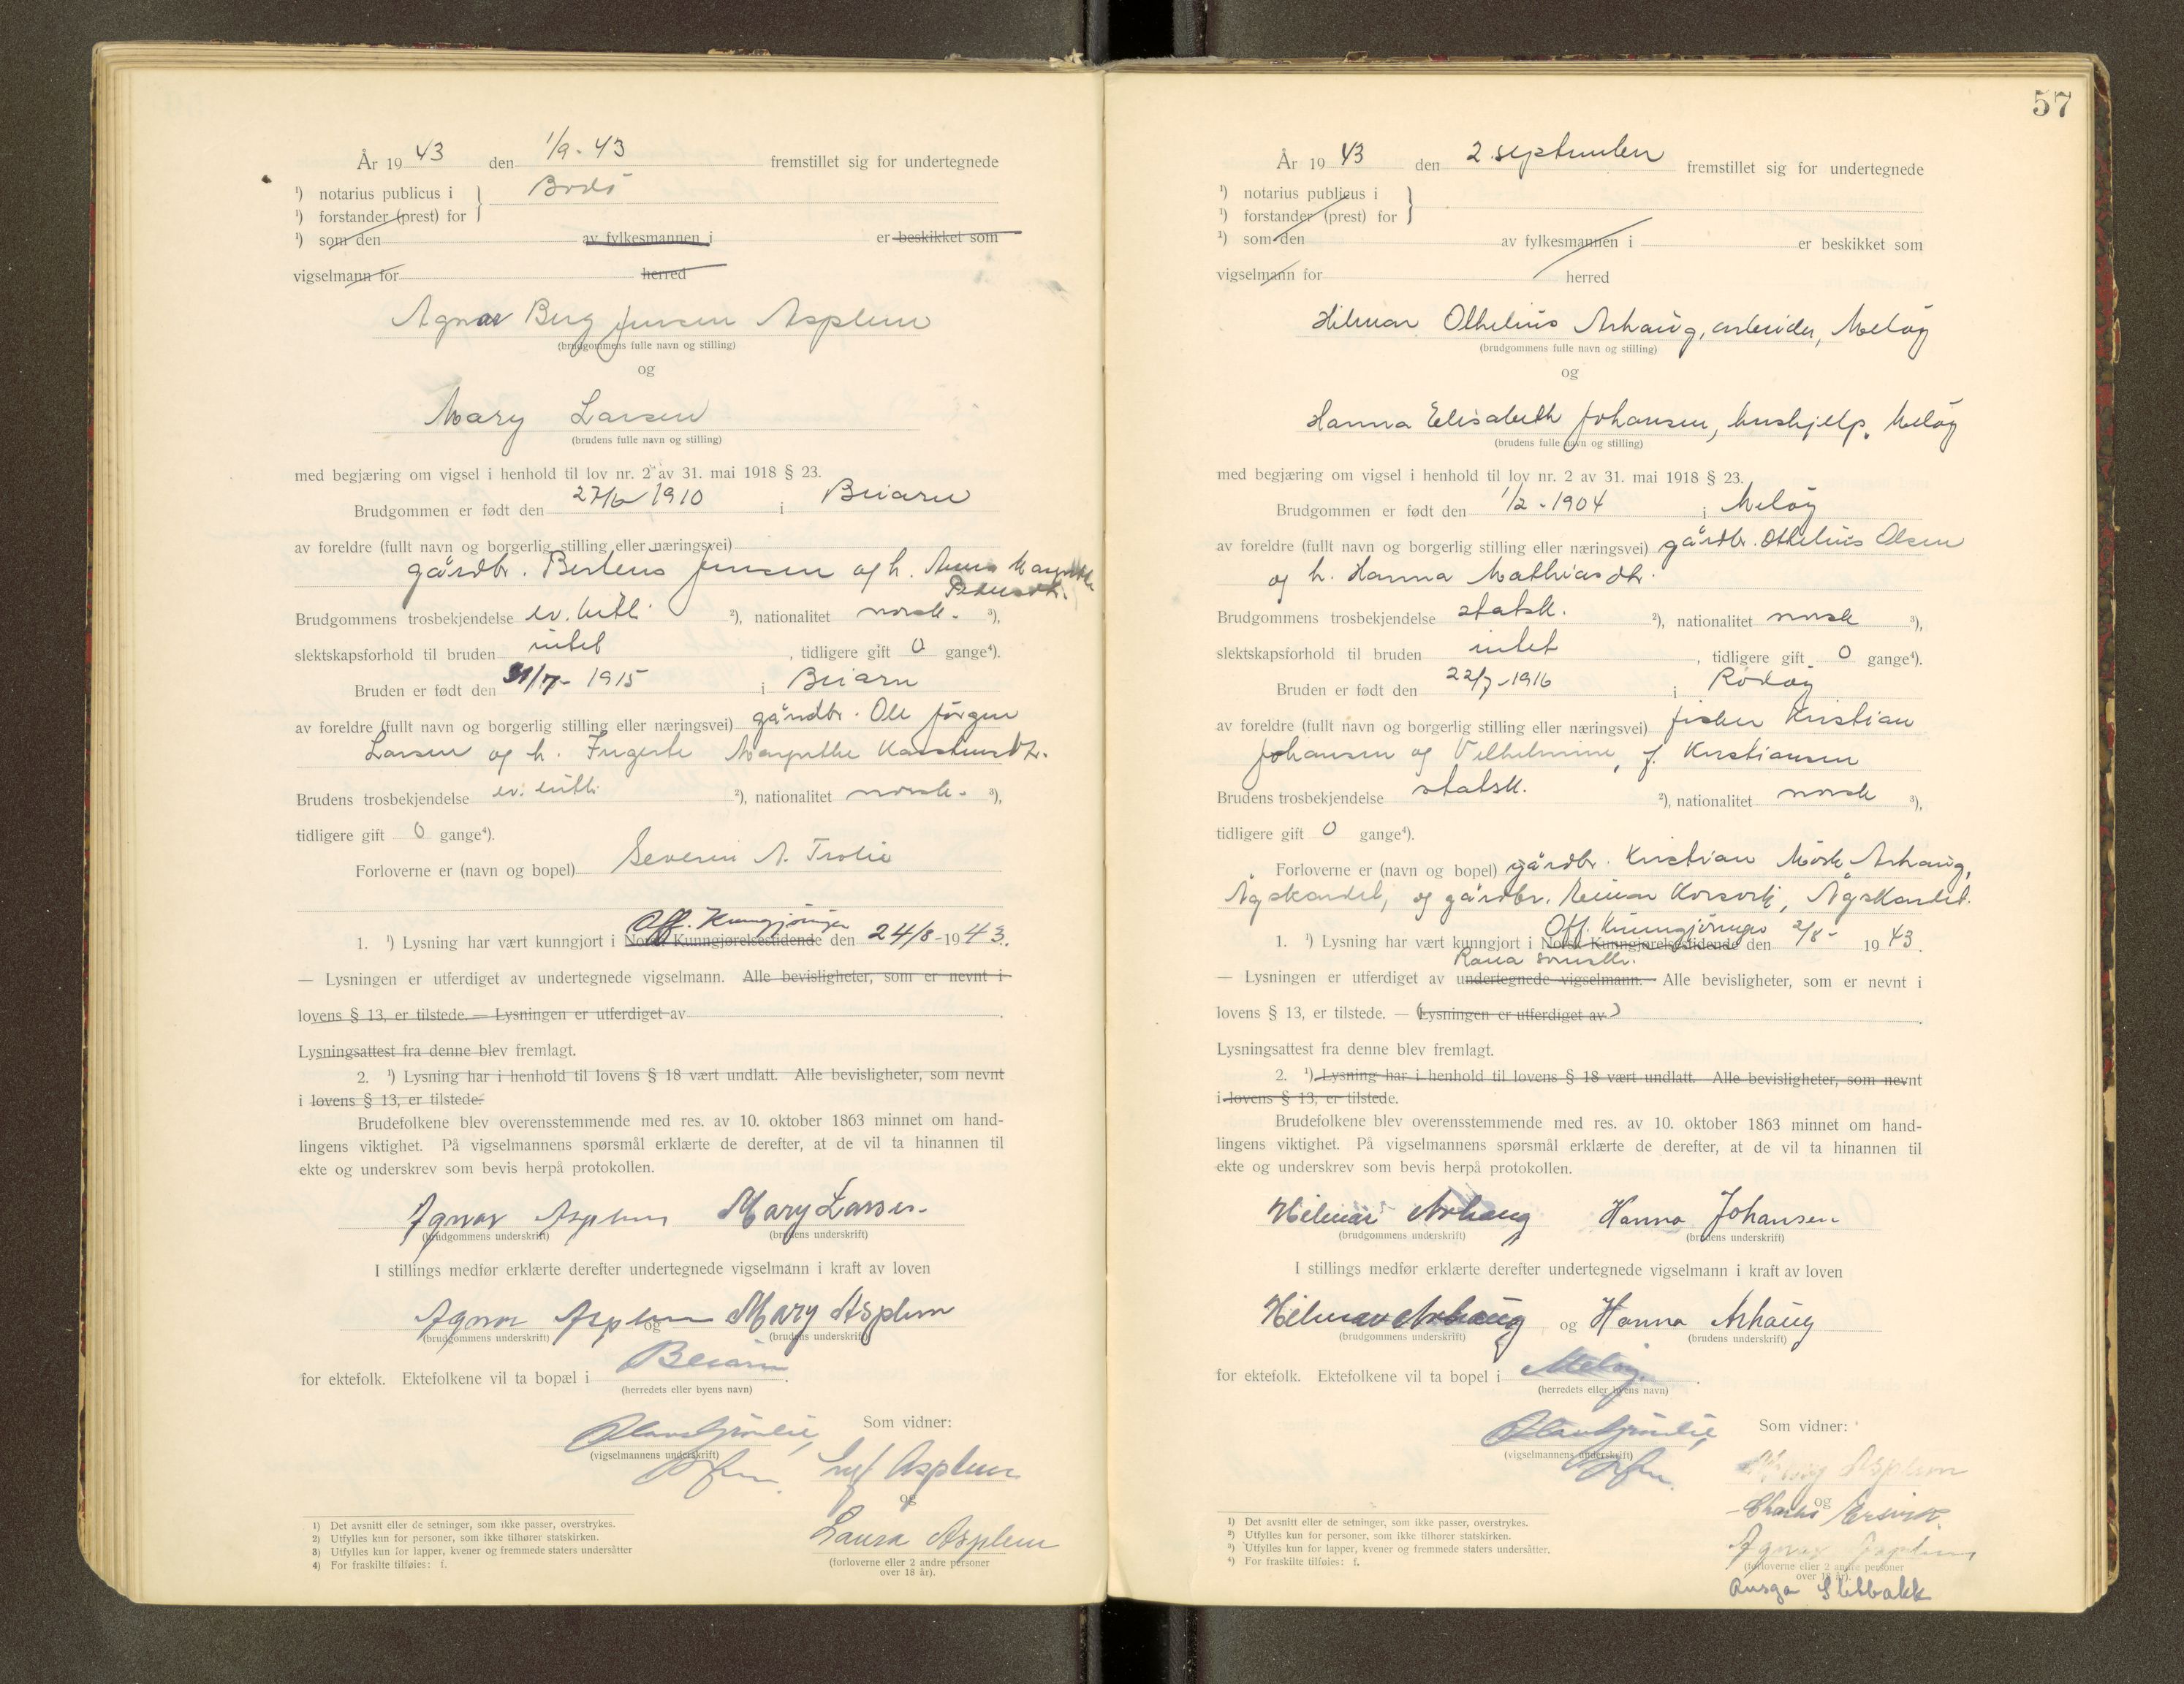 År 19 43 den 1/9 - 43 fremstillet sig for undertegnede
¹) notarius publicus i } Bodö
¹) forstander (prest) for
¹) som den av fylkesmannen i er beskikket som
vigselmann for herred
Agnar Berg Jensen Asplem
(brudgommens fulle navn og stilling)
og
Mary Larsen
(brudens fulle navn og stilling)
med begjæring om vigsel i henhold til lov nr. 2 av 31. mai 1918 § 23.
Brudgommen er født den 27/6 1910 i Beiarn
av foreldre (fullt navn og borgerlig stilling eller næringsvei)
gårdbr. Jensen og h. Anna
Brudgommens trosbekjendelse ev. luth. ²), nationalitet norsk. ³),
slektskapsforhold til bruden intet, tidligere gift 0 gange⁴).
Bruden er født den 31/7 - 1915 i Beiarn
av foreldre (fullt navn og borgerlig stilling eller næringsvei) gårdbr. Ole Jörgen
Larsen og h. Margrethe
Brudens trosbekjendelse ev. luth. ²), nationalitet norsk. ³),
tidligere gift 0 gange⁴).
Forloverne er (navn og bopel) Severin A. Trolie
Off. Kunngjöringer
1. ¹) Lysning har vært kunngjort i Norsk Kunngjørelsestidende den 24/8 - 19 43.
— Lysningen er utferdiget av undertegnede vigselmann. Alle bevisligheter, som er nevnt i
lovens § 13, er tilstede. — Lysningen er utferdiget av
Lysningsattest fra denne blev fremlagt.
2. ¹) Lysning har i henhold til lovens § 18 vært undlatt. Alle bevisligheter, som nevnt
i lovens § 13, er tilstede.
Brudefolkene blev overensstemmende med res. av 10. oktober 1863 minnet om hand-
lingens viktighet. På vigselmannens spørsmål erklærte de derefter, at de vil ta hinannen til
ekte og underskrev som bevis herpå protokollen.
Agnar Asplem Mary Larsen
(brudgommens underskrift) (brudens underskrift)
I stillings medfør erklærte derefter undertegnede vigselmann i kraft av loven
Agnar Asplem og Mary Asplem
(brudgommens underskrift) (brudens underskrift)
for ektefolk. Ektefolkene vil ta bopæl i Beiarn.
(herredets eller byens navn)
Som vidner:
(vigselmannens underskrift)
Asplem
og
Laura Asplem
(forloverne eller 2 andre personer
over 18 år).
1) Det avsnitt eller de setninger, som ikke passer, overstrykes.
2) Utfylles kun for personer, som ikke tilhører statskirken.
3) Utfylles kun for lapper, kvener og fremmede staters undersåtter
4) For fraskilte tilføies: f.
57
År 19 43 den 2. september fremstillet sig for undertegnede
¹) notarius publicus i }
¹) forstander (prest) for
¹) som den av fylkesmannen i er beskikket som
vigselmann for herred
Hilmar Othelius Arhaug, arbeider, Meløy
(brudgommens fulle navn og stilling)
og
Hanna Elisabeth Johansen, hushjelp, Meløy
(brudens fulle navn og stilling)
med begjæring om vigsel i henhold til lov nr. 2 av 31. mai 1918 § 23.
Brudgommen er født den 1/2 - 1904 i Meløy
av foreldre (fullt navn og borgerlig stilling eller næringsvei) gårdbr. Othelius Olsen
og h. Hanna Mathiasdtr.
Brudgommens trosbekjendelse statsk. ²), nationalitet norsk ³),
slektskapsforhold til bruden intet, tidligere gift 0 gange⁴).
Bruden er født den 22/7 - 1916 i Rødøy
av foreldre (fullt navn og borgerlig stilling eller næringsvei) fisker Kristian
Johansen og Vilhelmine, f. Kristiansen
Brudens trosbekjendelse statsk. ²), nationalitet norsk ³),
tidligere gift 0 gange⁴).
Forloverne er (navn og bopel) gårdbr. Kristian Mørk Arhaug,
Ågskardet, og gårdbr. Einar Korsvik, Ågskardet.
Off. Kunngjöringer
1. ¹) Lysning har vært kunngjort i Norsk Kunngjørelsestidende den 2/8 - 19 43.
Rana
— Lysningen er utferdiget av undertegnede vigselmann. Alle bevisligheter, som er nevnt i
lovens § 13, er tilstede. — (Lysningen er utferdiget av)
Lysningsattest fra denne blev fremlagt.
2. ¹) Lysning har i henhold til lovens § 18 vært undlatt. Alle bevisligheter, som nevnt
i lovens § 13, er tilstede.
Brudefolkene blev overensstemmende med res. av 10. oktober 1863 minnet om hand-
lingens viktighet. På vigselmannens spørsmål erklærte de derefter, at de vil ta hinannen til
ekte og underskrev som bevis herpå protokollen.
Hilmar Arhaug Hanna Johansen
(brudgommens underskrift) (brudens underskrift)
I stillings medfør erklærte derefter undertegnede vigselmann i kraft av loven
Hilmar Arhaug og Hanna Arhaug
(brudgommens underskrift) (brudens underskrift)
for ektefolk. Ektefolkene vil ta bopel i Meløy.
(herredets eller byens navn)
Som vidner:
(vigselmannens underskrift)
Mary Asplem
og
Charles
Agnar Asplem
(forloverne eller 2 andre personer
over 18 år).
Slettbakk
1) Det avsnitt eller de setninger, som ikke passer, overstrykes.
²) Utfylles kun for personer, som ikke tilhører statskirken.
³) Utfylles kun for lapper, kvener og fremmede staters undersåtter.
⁴) For fraskilte tilføies: f.